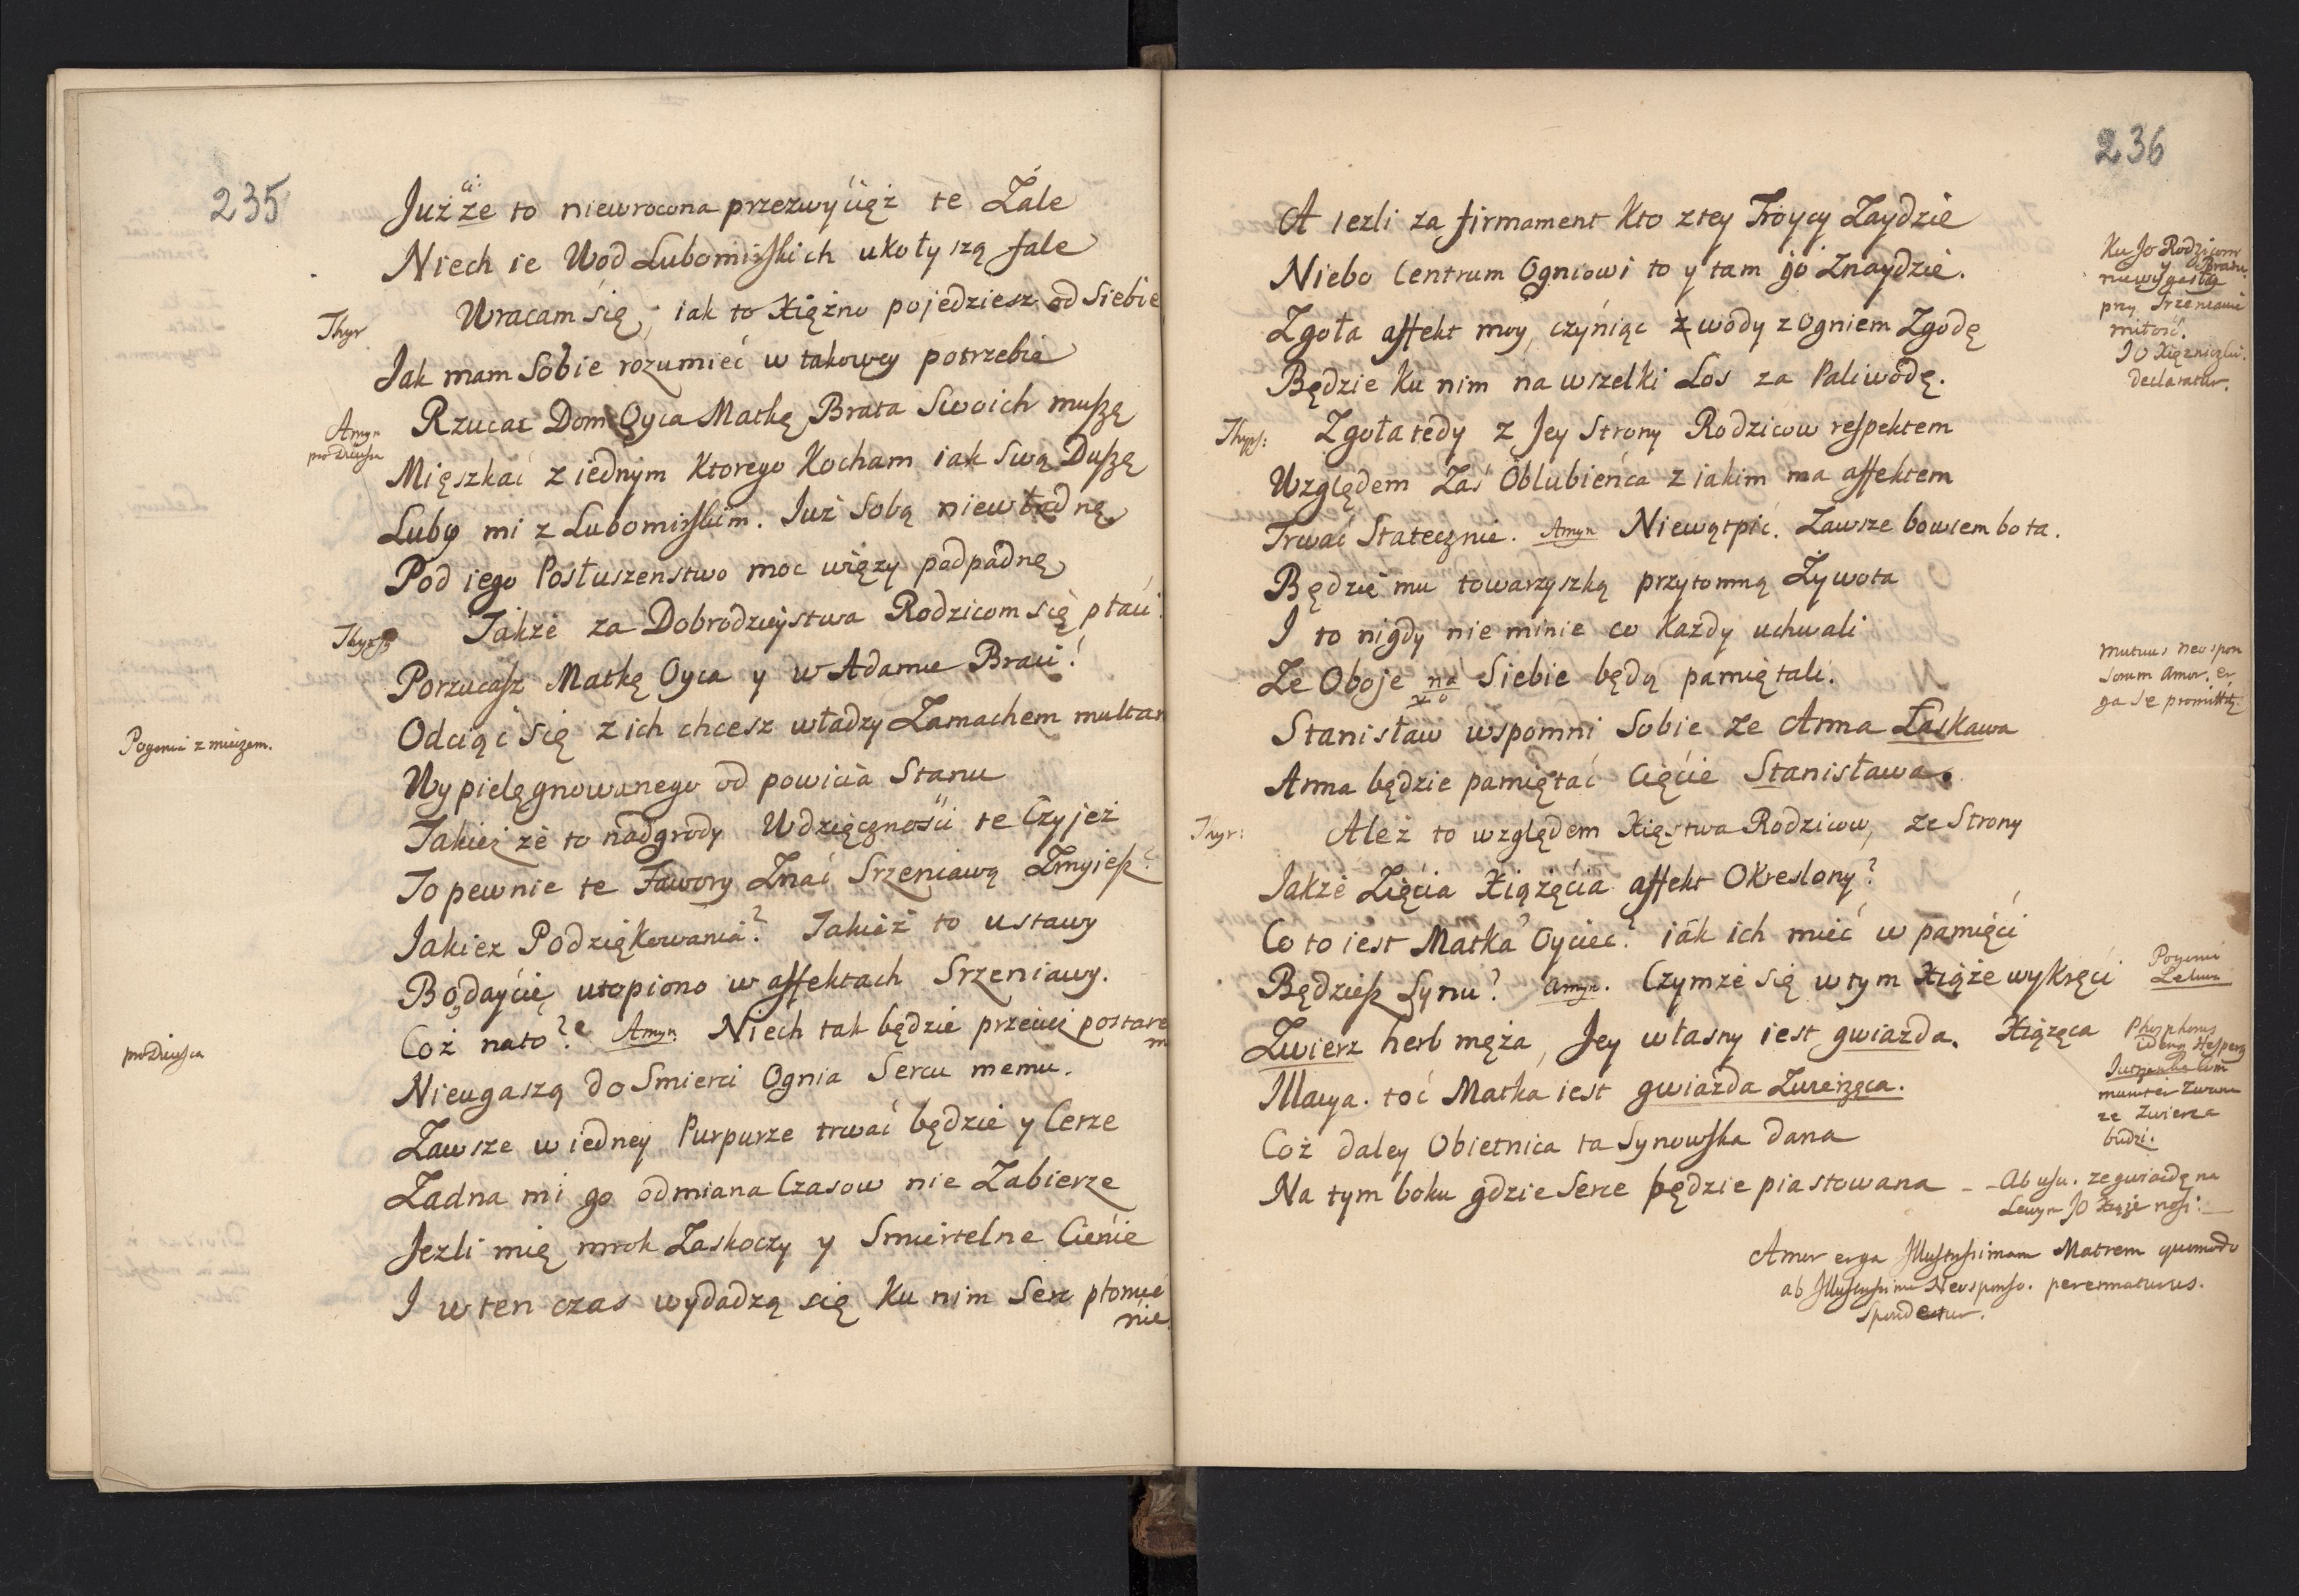 235
Już ci że to niewrocona przezwyćięż te Żale
Niech ie Wod Lubomirskich ukołyszą fale
Thyr Wracam się, iak to Xiężno pojedziesz od siebie
Jak mam Sobie rozumieć w takowey potrzebie
Amyn pro Drusilla Rzucac Dom Oyca Matkę Brata Swoich muszę
Mięszkać z iednym Ktorego Kocham iak Swą Duszę
Luby mi z Lubomirskim. Już Sobą niewładnę
Pod iego Posłuszenstwo moc więzy podpadnę
Thyrs Także za Dobrodzieystwa Rodzicom się płaci!
Porzucasz Matkę Oyca y w Adamie Braci!
Pogonia z mieczem. Odciąć Się z ich chcesz władzy Zamachem multan
Wypielęgnowanego od powicia Stanu
Takież że to nadgrody Wdzięcznośći te Czyjeż
To pewnie te Fawory Znać Srzeniawą Zmyiesz?
Jakiez Podziękowania? Takież to ustawy
Bodayćię utopiono w affektach Srzeniawy.
Coż nato? Amyn Niech tak będzie przecież postare
m
Nieugaszą do Smierci Ognia Sercu memu.
Zawsze w iedney Purpurze trwać będzie y Cerze
Żadna mi go odmiana Czasow nie Zabierze
Jezli mię mrok Zaskoczy y Smiertelne Cienie
I w ten czas wydadzą się Ku nim Serc płomie
nie.
236
A iezli za firmament Kto z tey Troycy Zaydzie
Niebo Centrum Ogniowi to y tam go Znaydzie.
Zgoła affekt moy, czyniąc z wody z Ogniem Zgodę
Będzie Ku nim na wszelki Los za Paliwodę.
Ku JO Rodzicom
y Bratu
niewygasłą
przy Srzeniawie
miłość.
JO Xiężniczki.
declaratur.
Thyrs: Zgoła tedy z Jey Strony Rodzicow respektem
Względem Zaś Oblubieńca z iakim ma affektem
Trwać Statecznie. Amyn Niewątpić. Zawsze bowiem bo ta.
Będzie mu towarzyszką przytomną Żywota
I to nigdy nie minie co Każdy uchwali
Że Oboje na Siebie będą pamiętali.
mutuus neospon
sorum amor. er
ga se promittitr
Stanisław wspomni Sobie że Anna Łaskawa
Anna będzie pamiętać Cięćie Stanisława.
Thyr: Aleź to względem Xięstwa Rodzicow, ze Strony
Jakże Zięcia Xiążęcia affekt Okreslony?
Co to iest Matka Oyciec? iak ich mieć w pamięći
Będziesz Synu? Amyn. Czymże się w tym Xiąże wykręći
Pogonia
Leliwa
Zwierz herb męża, Jey własny iest gwiazda. Xiążęca
Maya. toć Matka iest gwiazda Zwierzęca.
Phosphorus
idem Hesperg
Jutrzenka
ze Zwierza
budzi.
Coż daley Obietnica ta Synowska dana
Na tym boku gdzie Serce będzie piastowana -- Ab usu. ze gwiazdę na
Lewym JO Xiąże nosi:
Amor erga Illustrissimam Matrem quomodo
ab Illustrissimo Neosponso. perennaturus.
Spondetur.